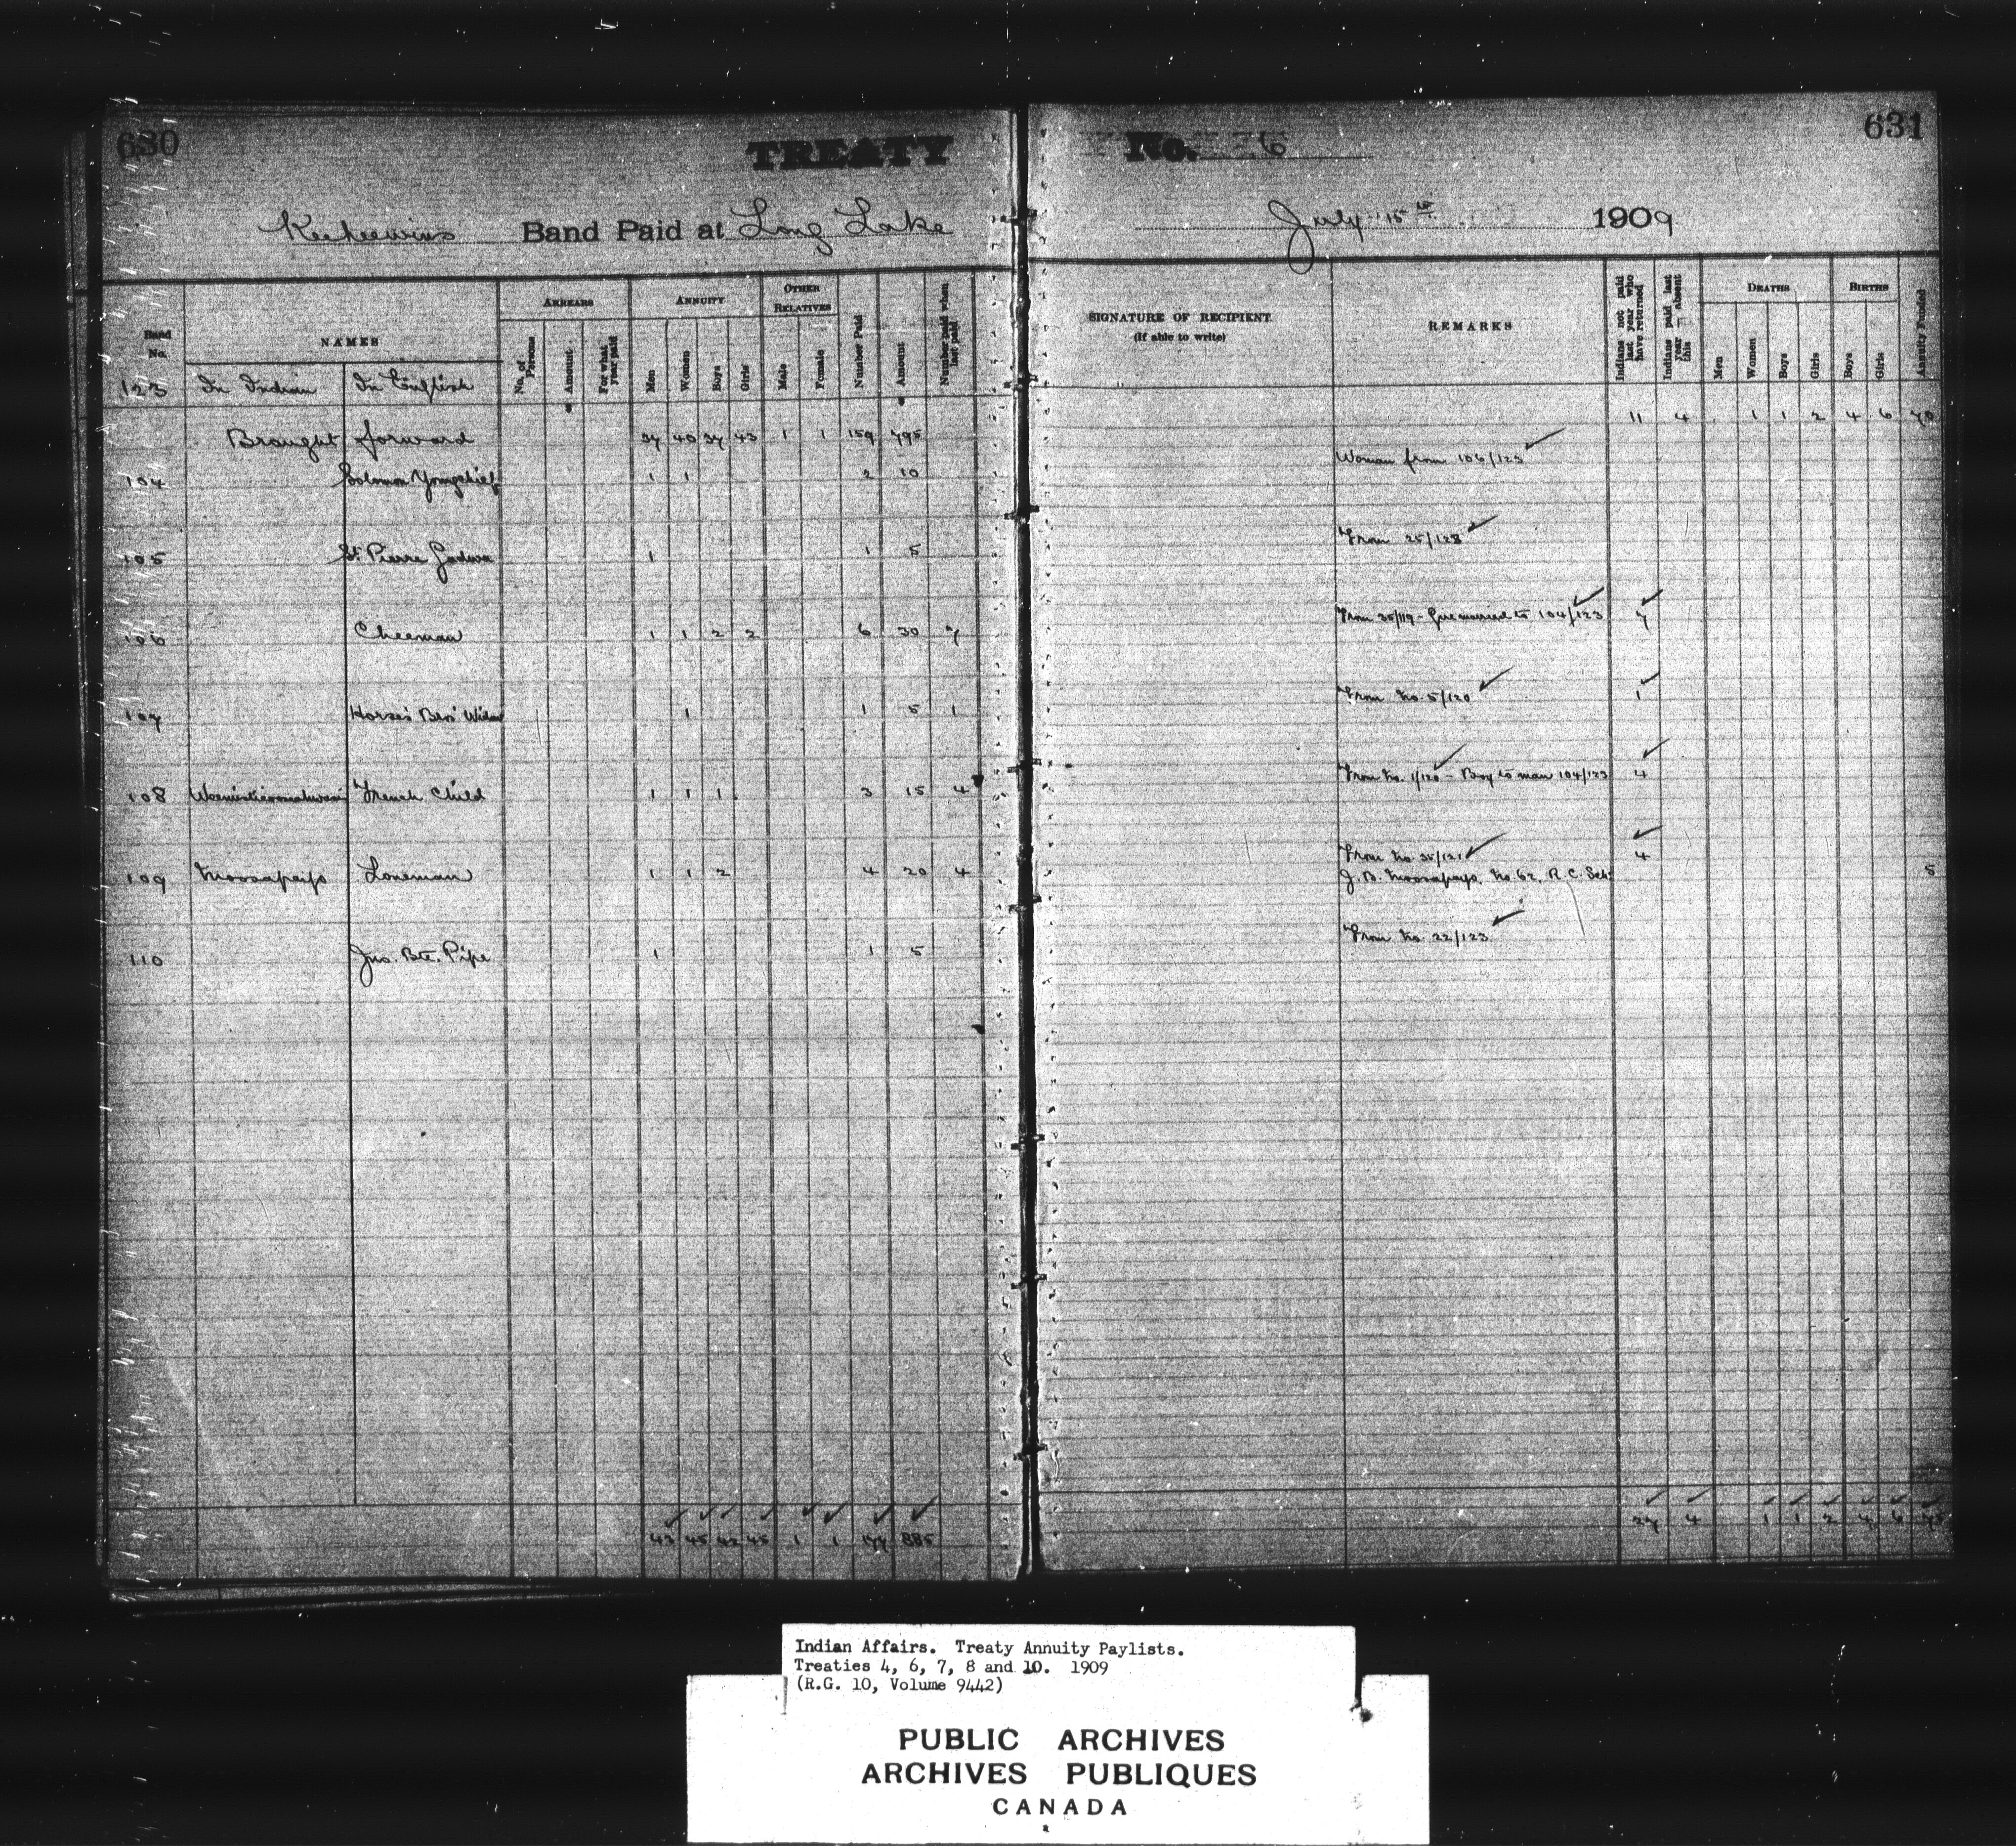 630
TREATY No. 6
631
Keeheewins Band Paid at Long Lake July 15th 1909
Band No.
NAMES
ARREARS
ANNUITY
OTHER RELATIVES
No. of Persons
Amount
For what year paid
Men
Women
Boys
Girls
Male
Female
Number Paid
Amount
Number paid when last paid
SIGNATURE OF RECIPIENT
(If able to write)
REMARKS
Indians not paid last year who have returned
Indians paid last year absent this
DEATHS
BIRTHS
Men
Women
Boys
Girls
Boys
Girls
Annuity Funded
123 In Indian In English
Brought forward 37 40 37 43 1 1 159 795 11 4 1 1 2 4 6 70
104 Solomon Youngchief 1 1 2 10 Woman from 106/123
105 St. Pierre 1 1 5 From 25/123
106 Cheeman 1 1 2 2 6 30 7 From 35/119 - married to 104/123 7
107 Horse's Widow 1 1 5 1 From No. 5/120 1
108 French Child 1 1 1 3 15 4 From No. 1/120 - Boy to man 104/123 4
109 Moosapayo Loneman 1 1 2 4 20 4 From No. 35/121 4
J. B. Moosapayo, No. 62, R. C. Sch. 5
110 Jno. Bte. Pipe 1 1 5 From No. 22/123
43 45 42 45 1 1 177 885 27 4 1 1 2 4 6 75
Indian Affairs. Treaty Annuity Paylists.
Treaties 4, 6, 7, 8 and 10. 1909
(R.G. 10, Volume 9442)
PUBLIC ARCHIVES
ARCHIVES PUBLIQUES
CANADA